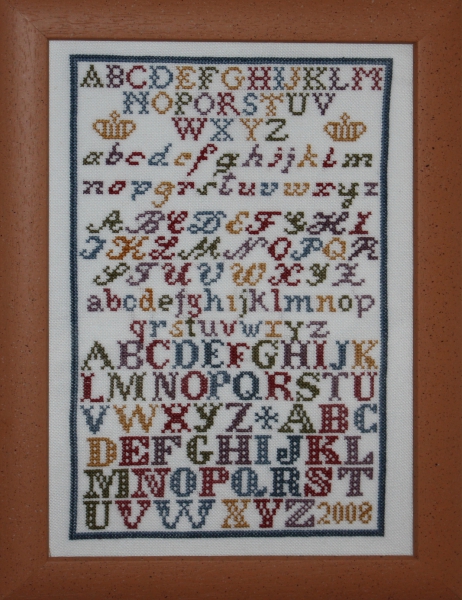 ABCDEFGHIJKLM
NOPQRSTUV
WXYZ
abcdefghijklm
nopqrstuvwxyz
ABCDEFGHI
JKLMNOPQR
STUVWXYZ
abcdefghijklmnop
qrstuvwxyz
ABCDEFGHIJK
LMNOPQRSTU
VWXYZ*ABC
DEFGHIJKL
MNOPQRST
UVWXYZ2008